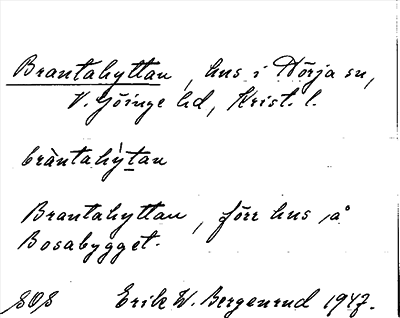 Brantahyttan, hus i Nörja sn,
V. Göinge hd, Krist. l.
bràntahỳtan
Brantahyttan, förr hus på
Bosabygget.
Erik W. Bergenrud 1947.